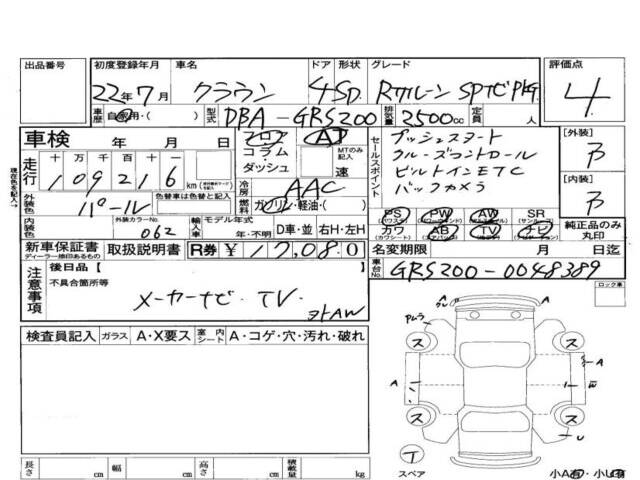 出品番号 初度登録年月 車名 ドア 形状 グレード 評価点
22年7月 クラウン 4 SD Rサルーン SPナビPkg 4
車歴 自家用・( ) 型式 DBA-GRS200 排気量 2500cc 定員 人
車検 年 月 日
フロア コラム ダッシュ AT MTのみ記入 速
現在色を記入→
走行 十 万 千 百 十 一
109216 km
冷房 AAC
燃料 ガソリン・軽油・( )
外装色 パール 色替車は色替えと記入
内装色 外装カラーNo. 062 輸入車 モデル年式 年・不明 D車・並 右H・左H
セールスポイント
プッシュスタート
クルーズコントロール
ビルトインETC
バックカメラ
PS PW AW SR
カワ AB TV ナビ
純正品のみ丸印
[外装] ア
[内装] ア
新車保証書 取扱説明書 R券 ¥17,080
ディーラー捺印あるもの
名変期限 月 日迄
車台No. GRS200-0048389
注意事項 後日品【 】
不具合箇所等
メーカーナビ・TV・
カAW
ロック車
検査員記入 ガラス A・X要ス 室内シート A・コゲ・穴・汚れ・破れ
長さ cm 幅 cm 高さ cm 積載量 kg
A
ス ス
A A
ス ス
U
T
スペア
小A有・小U有